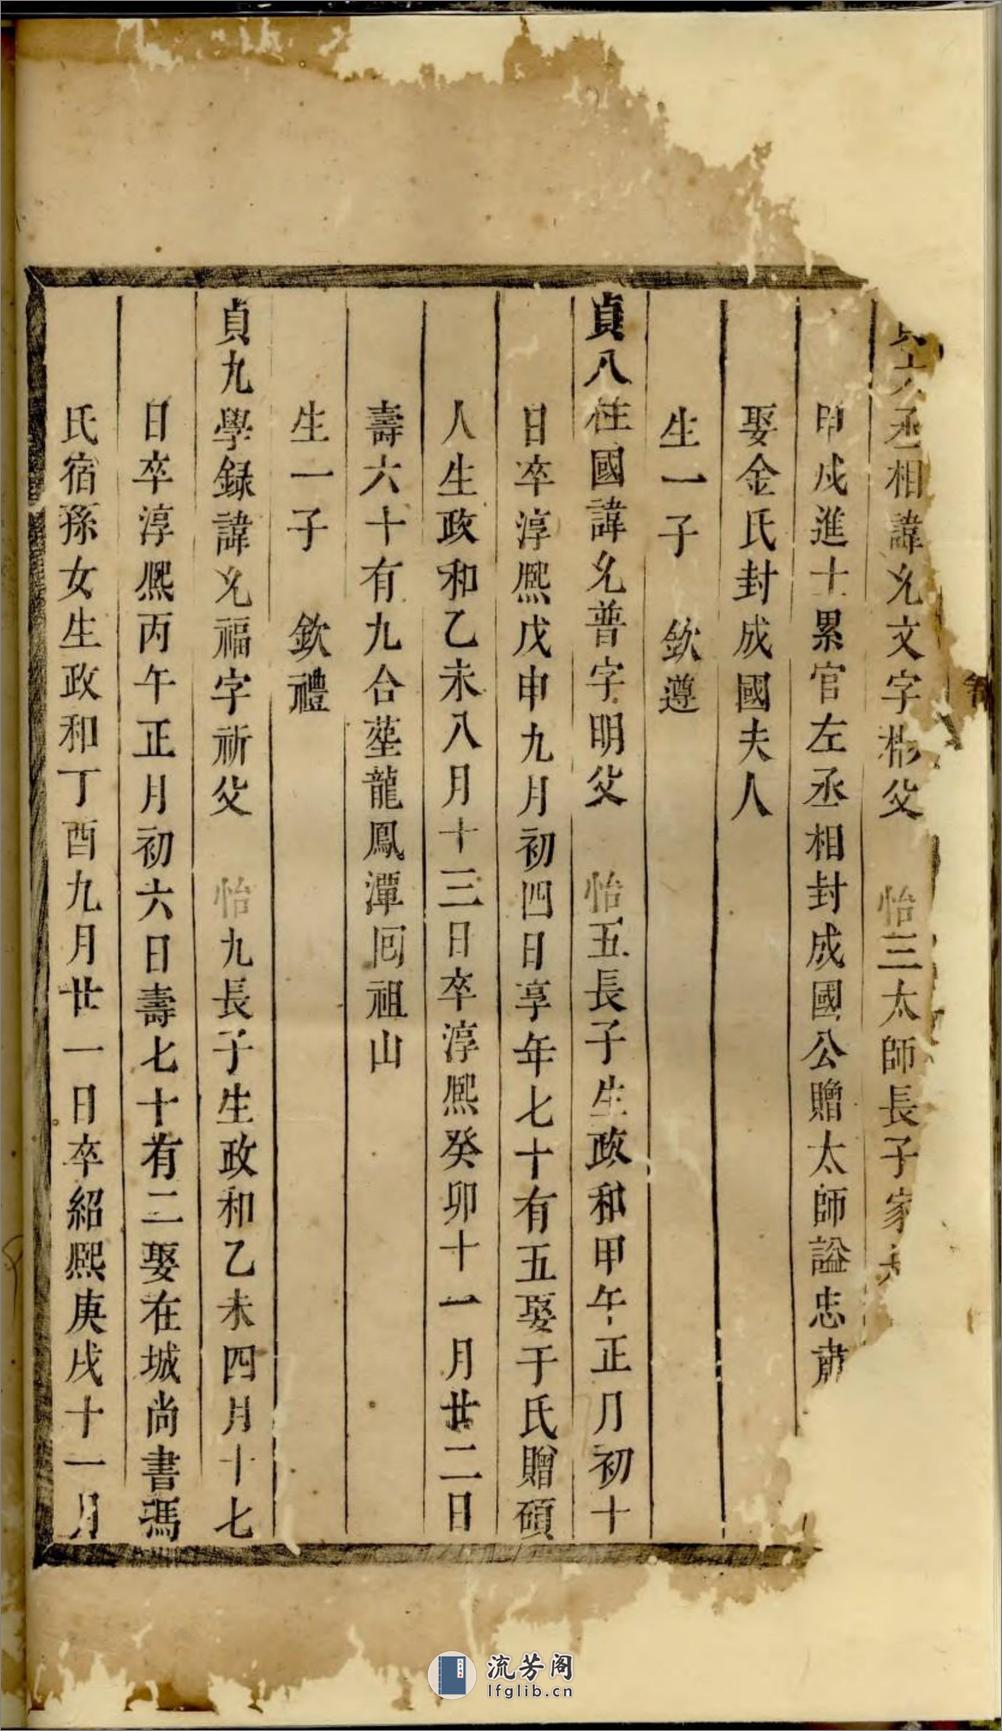 六丞相諱允文字彬父　怡三太師長子家
甲戌進士累官左丞相封成國公贈太師謚忠肅
娶金氏封成國夫人
生一子　欽遵
貞八柱國諱允普字明父　怡五長子生政和甲午正月初十
日卒淳熙戊申九月初四日享年七十有五娶于氏贈碩
人生政和乙未八月十三日卒淳熙癸卯十一月廿二日
壽六十有九合塟龍鳳潭囘祖山
生一子　欽禮
貞九學録諱允福字祈父　怡九長子生政和乙未四月十七
日卒淳熙丙午正月初六日壽七十有二娶在城尚書馮
氏宿孫女生政和丁酉九月廿一日卒紹熙庚戌十一月
流芳阁
lfglib.cn